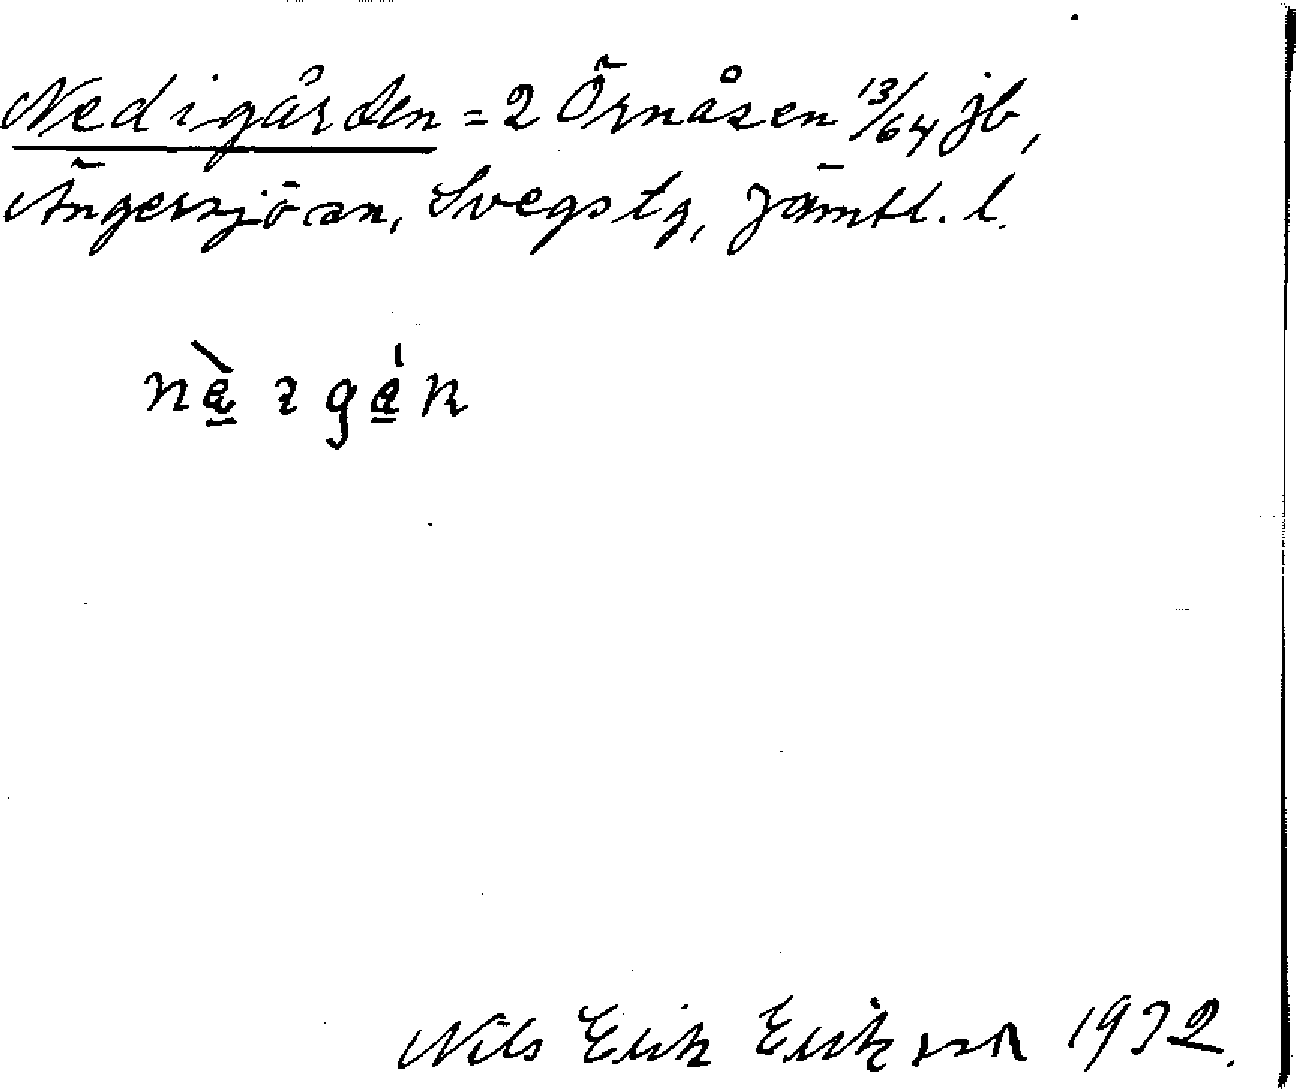 Nedigården = 2 Örnåsen 13/64 jb,
Ängersjö sn, Svegs tg, Jämtl. l.
Nils Erik Eriksson 1932.